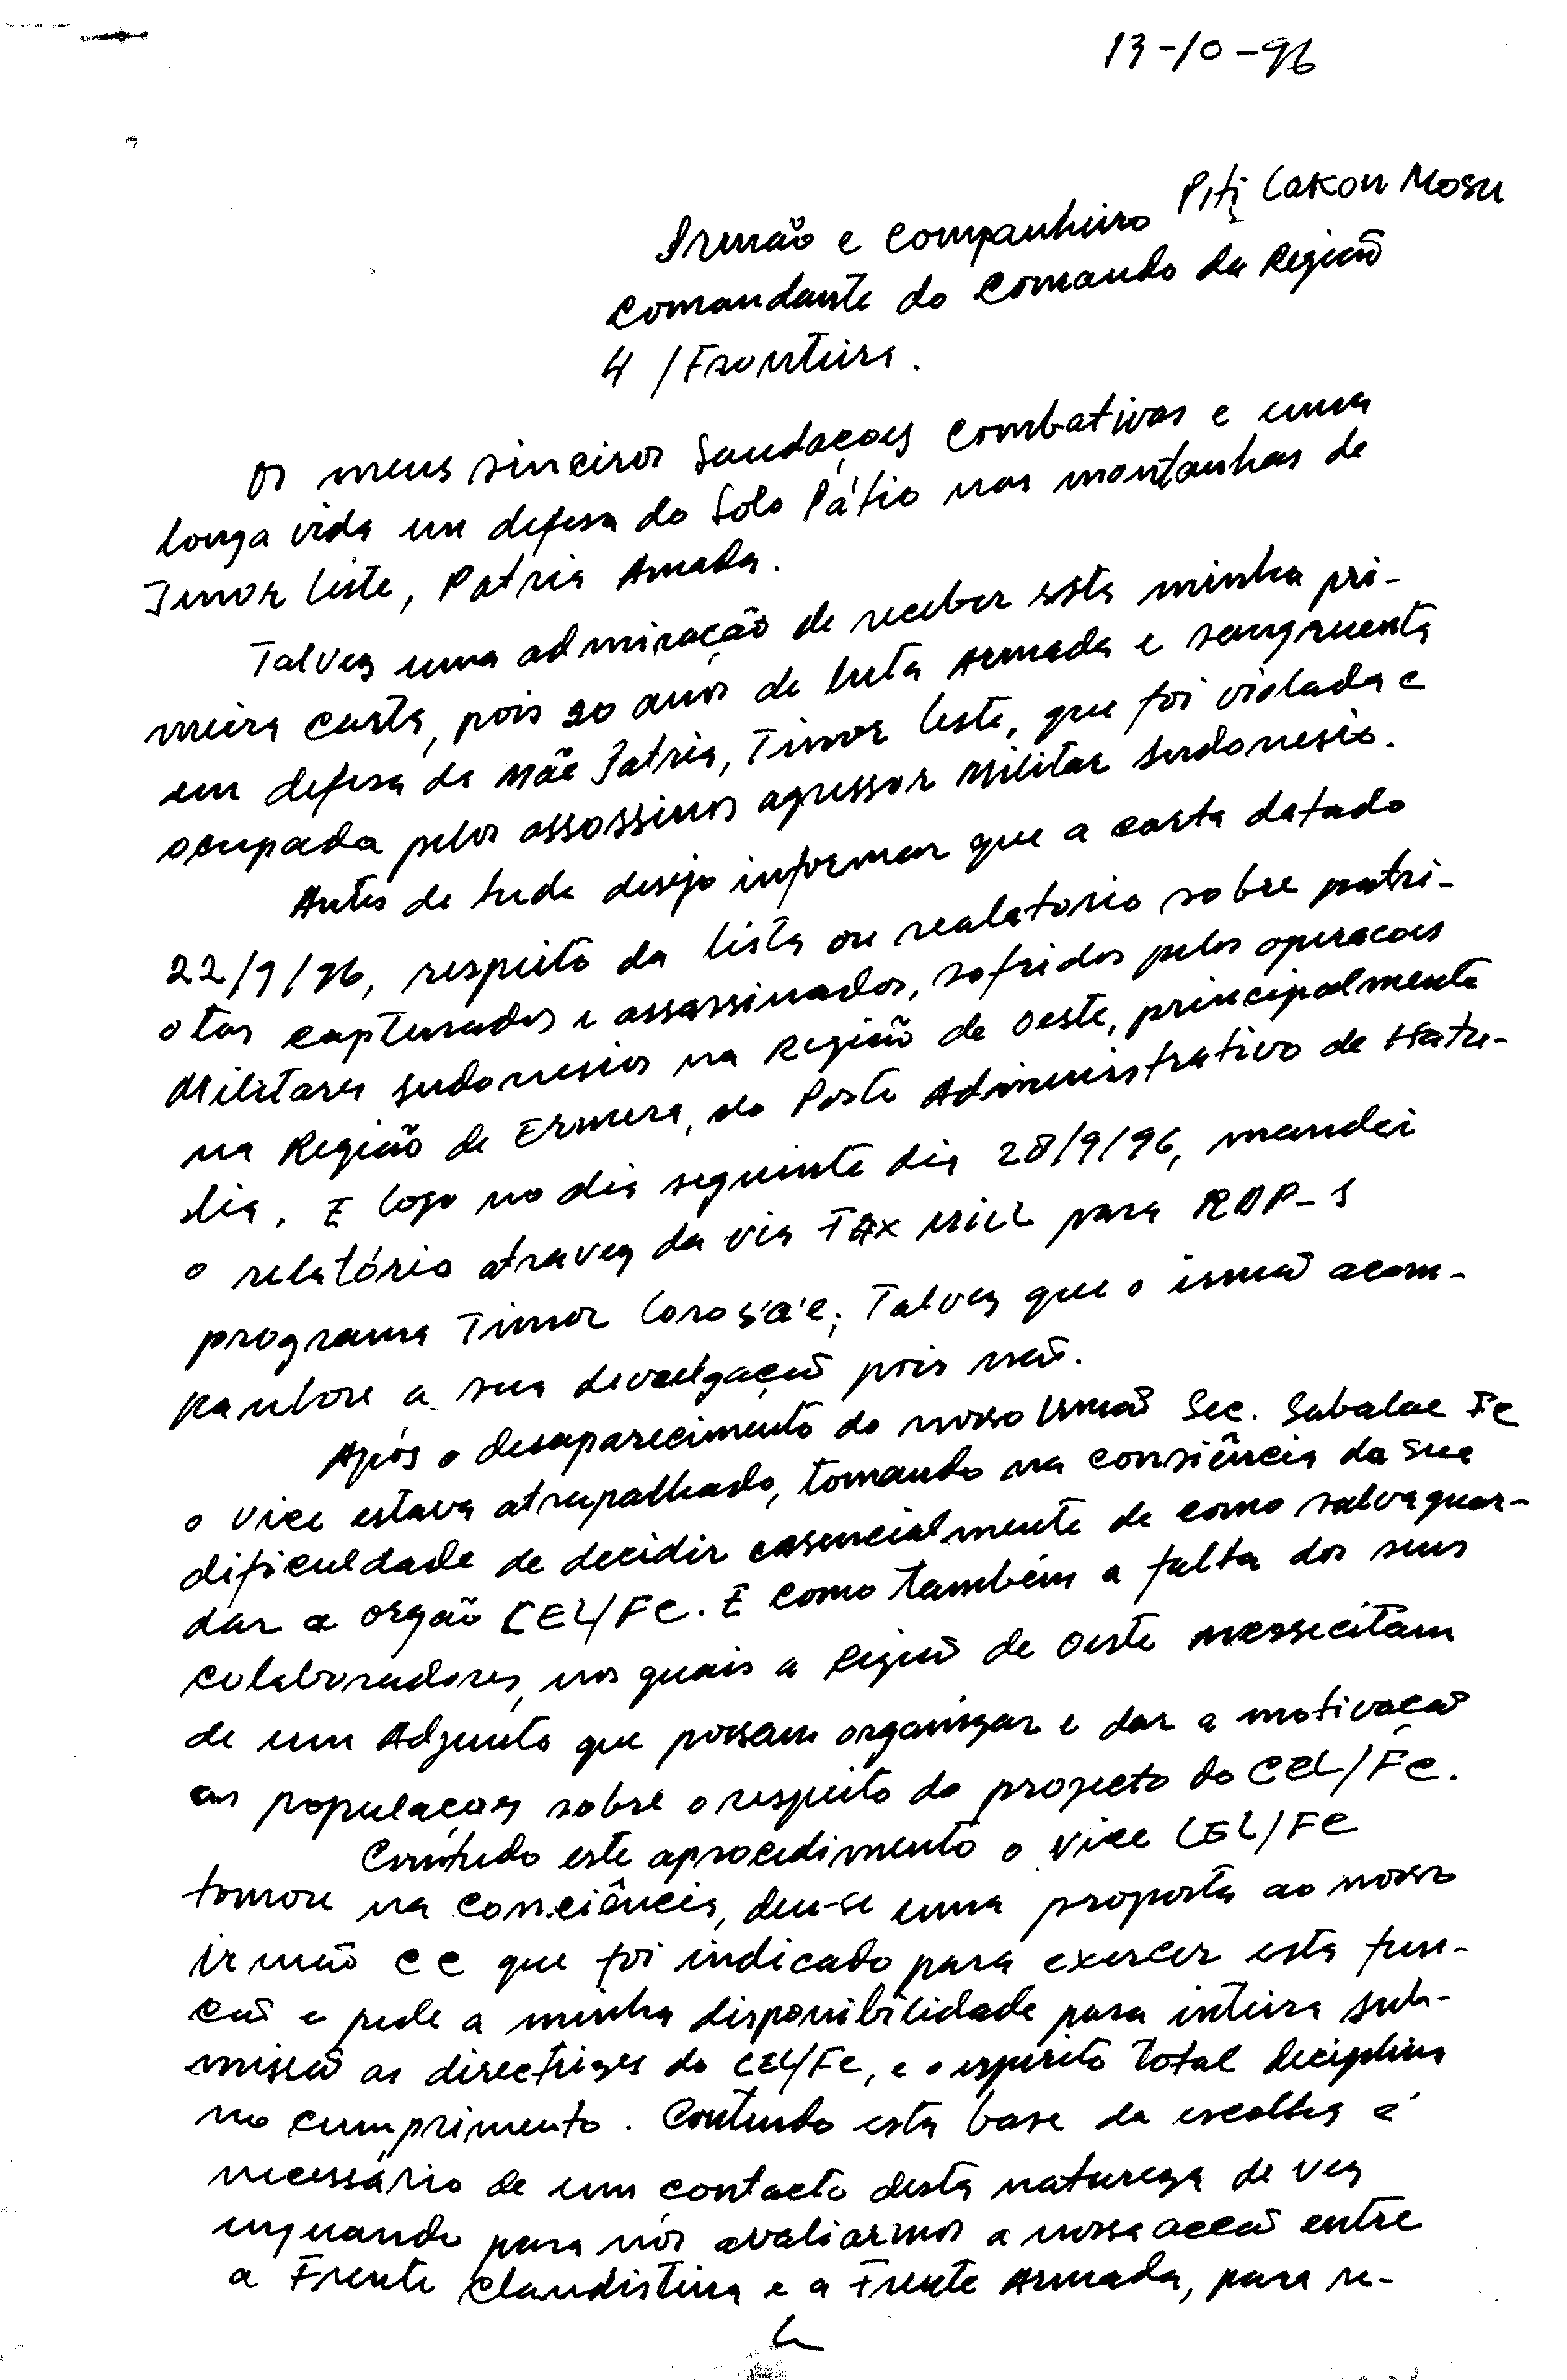 13-10-96
Irmão e companheiro Piti Lakon Mosu
Comandante do Comando da Região
4 / Fronteira.
Os meus sinceiros Saudações Combativas e uma
longa vida em defesa do Solo Pátio nas montanhas de
Timor Leste, Patria Amada.
Talvez uma admiração de receber esta minha pri-
meira carta, pois 20 anos de luta Armada e sangruenta
em defesa da Mãe Patria, Timor Leste, que foi violada e
ocupada pelos assossinos agressor Militar Indonesio.
Antes de tudo desejo informar que a carta datado
22/9/96, respeito da lista ou realatorio sobre patri-
otas capturados e assassinados, sofridos pelos operacoes
Militares Indonesios na Região de Oeste, principalmente
na Região de Ermera, do Posto Administrativo de Hatu-
lia. E logo no dia seguinte dia 28/9/96, mandei
o relatório atravez da via Fax para RDP-S
programa Timor Lorosa'e; Talvez que o irmão acom-
panhou a sua devulgação pois não.
Após o desaparecimento do nosso Irmão Sec. Sabalae Fc
o Vice estava atrapalhado, tomando na consiência da sua
dificuldade de decidir essencialmente de como salvaguar-
dar a orgão CEL/FC. E como também a falta dos seus
colaboradores, nos quais a Região de Oeste nessecitam
de um Adjunto que possam organizar e dar a motivação
as populações sobre o respeito do projecto do CEL/FC.
Contudo este aprocedimento o Vice CEL/FC
tomou na consciência, deu-se uma proposta ao nosso
irmão CC que foi indicado para exercer esta fun-
ção e pede a minha disponibilidade para inteira sub-
missão as directrizes do CEL/FC, e o espirito Total deciplina
no cumprimento. Contudo esta base da escolha é
necessário de um contacto desta natureza de vez
enquando para nós avaliarmos a nossa acção entre
a Frente Clandistina e a Frente Armada, para re-